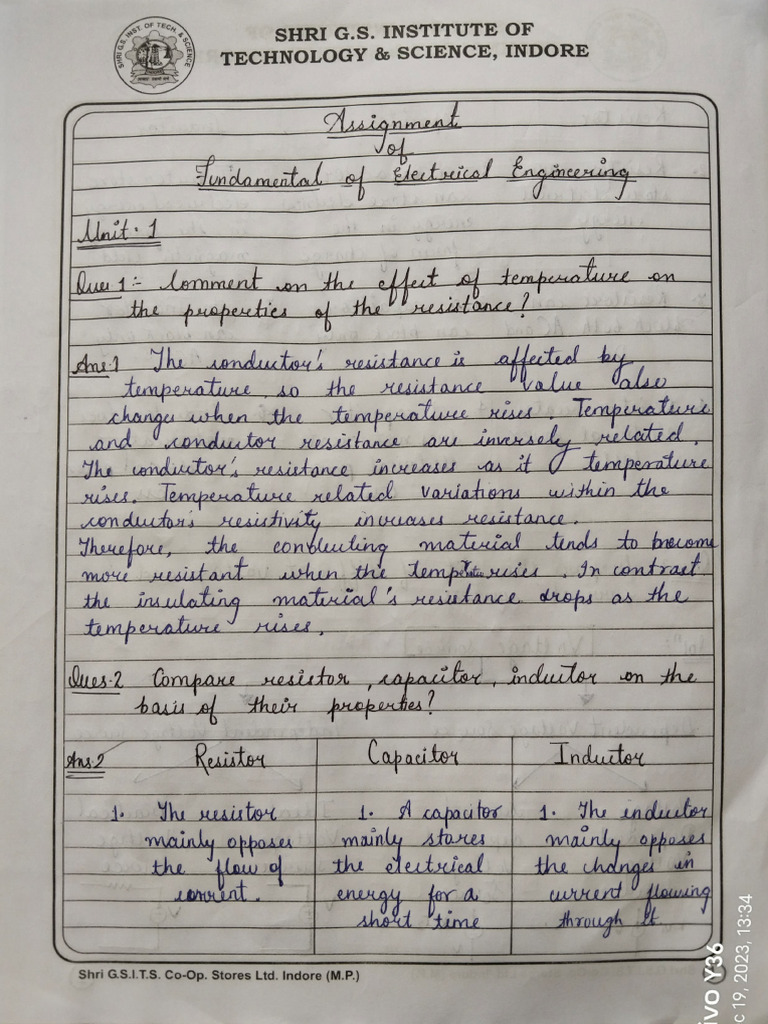 SHRI G.S. INSTITUTE OF
TECHNOLOGY & SCIENCE, INDORE
SHRI G.S. INST. OF TECH. & SCIENCE
Assignment
of
Fundamental of Electrical Engineering
Unit-1
Ques 1:- Comment on the effect of temperature on
the properties of the resistance?
Ans.1 The conductor's resistance is affected by
temperature, so the resistance value also
change when the temperature rises. Temperature
and conductor resistance are inversely related.
The conductor's resistance increases as it temperature
rises. Temperature related variations within the
conductor's resistivity increases resistance.
Therefore, the conducting material tends to become
more resistant when the temperature rises. In contrast
the insulating material's resistance drops as the
temperature rises.
Ques.2 Compare resistor, capacitor, inductor on the
basis of their properties?
Ans.2 Resistor Capacitor Inductor
1. The resistor 1. A capacitor 1. The inductor
mainly opposes mainly stores mainly opposes
the flow of the electrical the changes in
current. energy for a current flowing
short time through it
Shri G.S.I.T.S. Co-Op. Stores Ltd. Indore (M.P.)
vivo Y36
19, 2023, 13:34